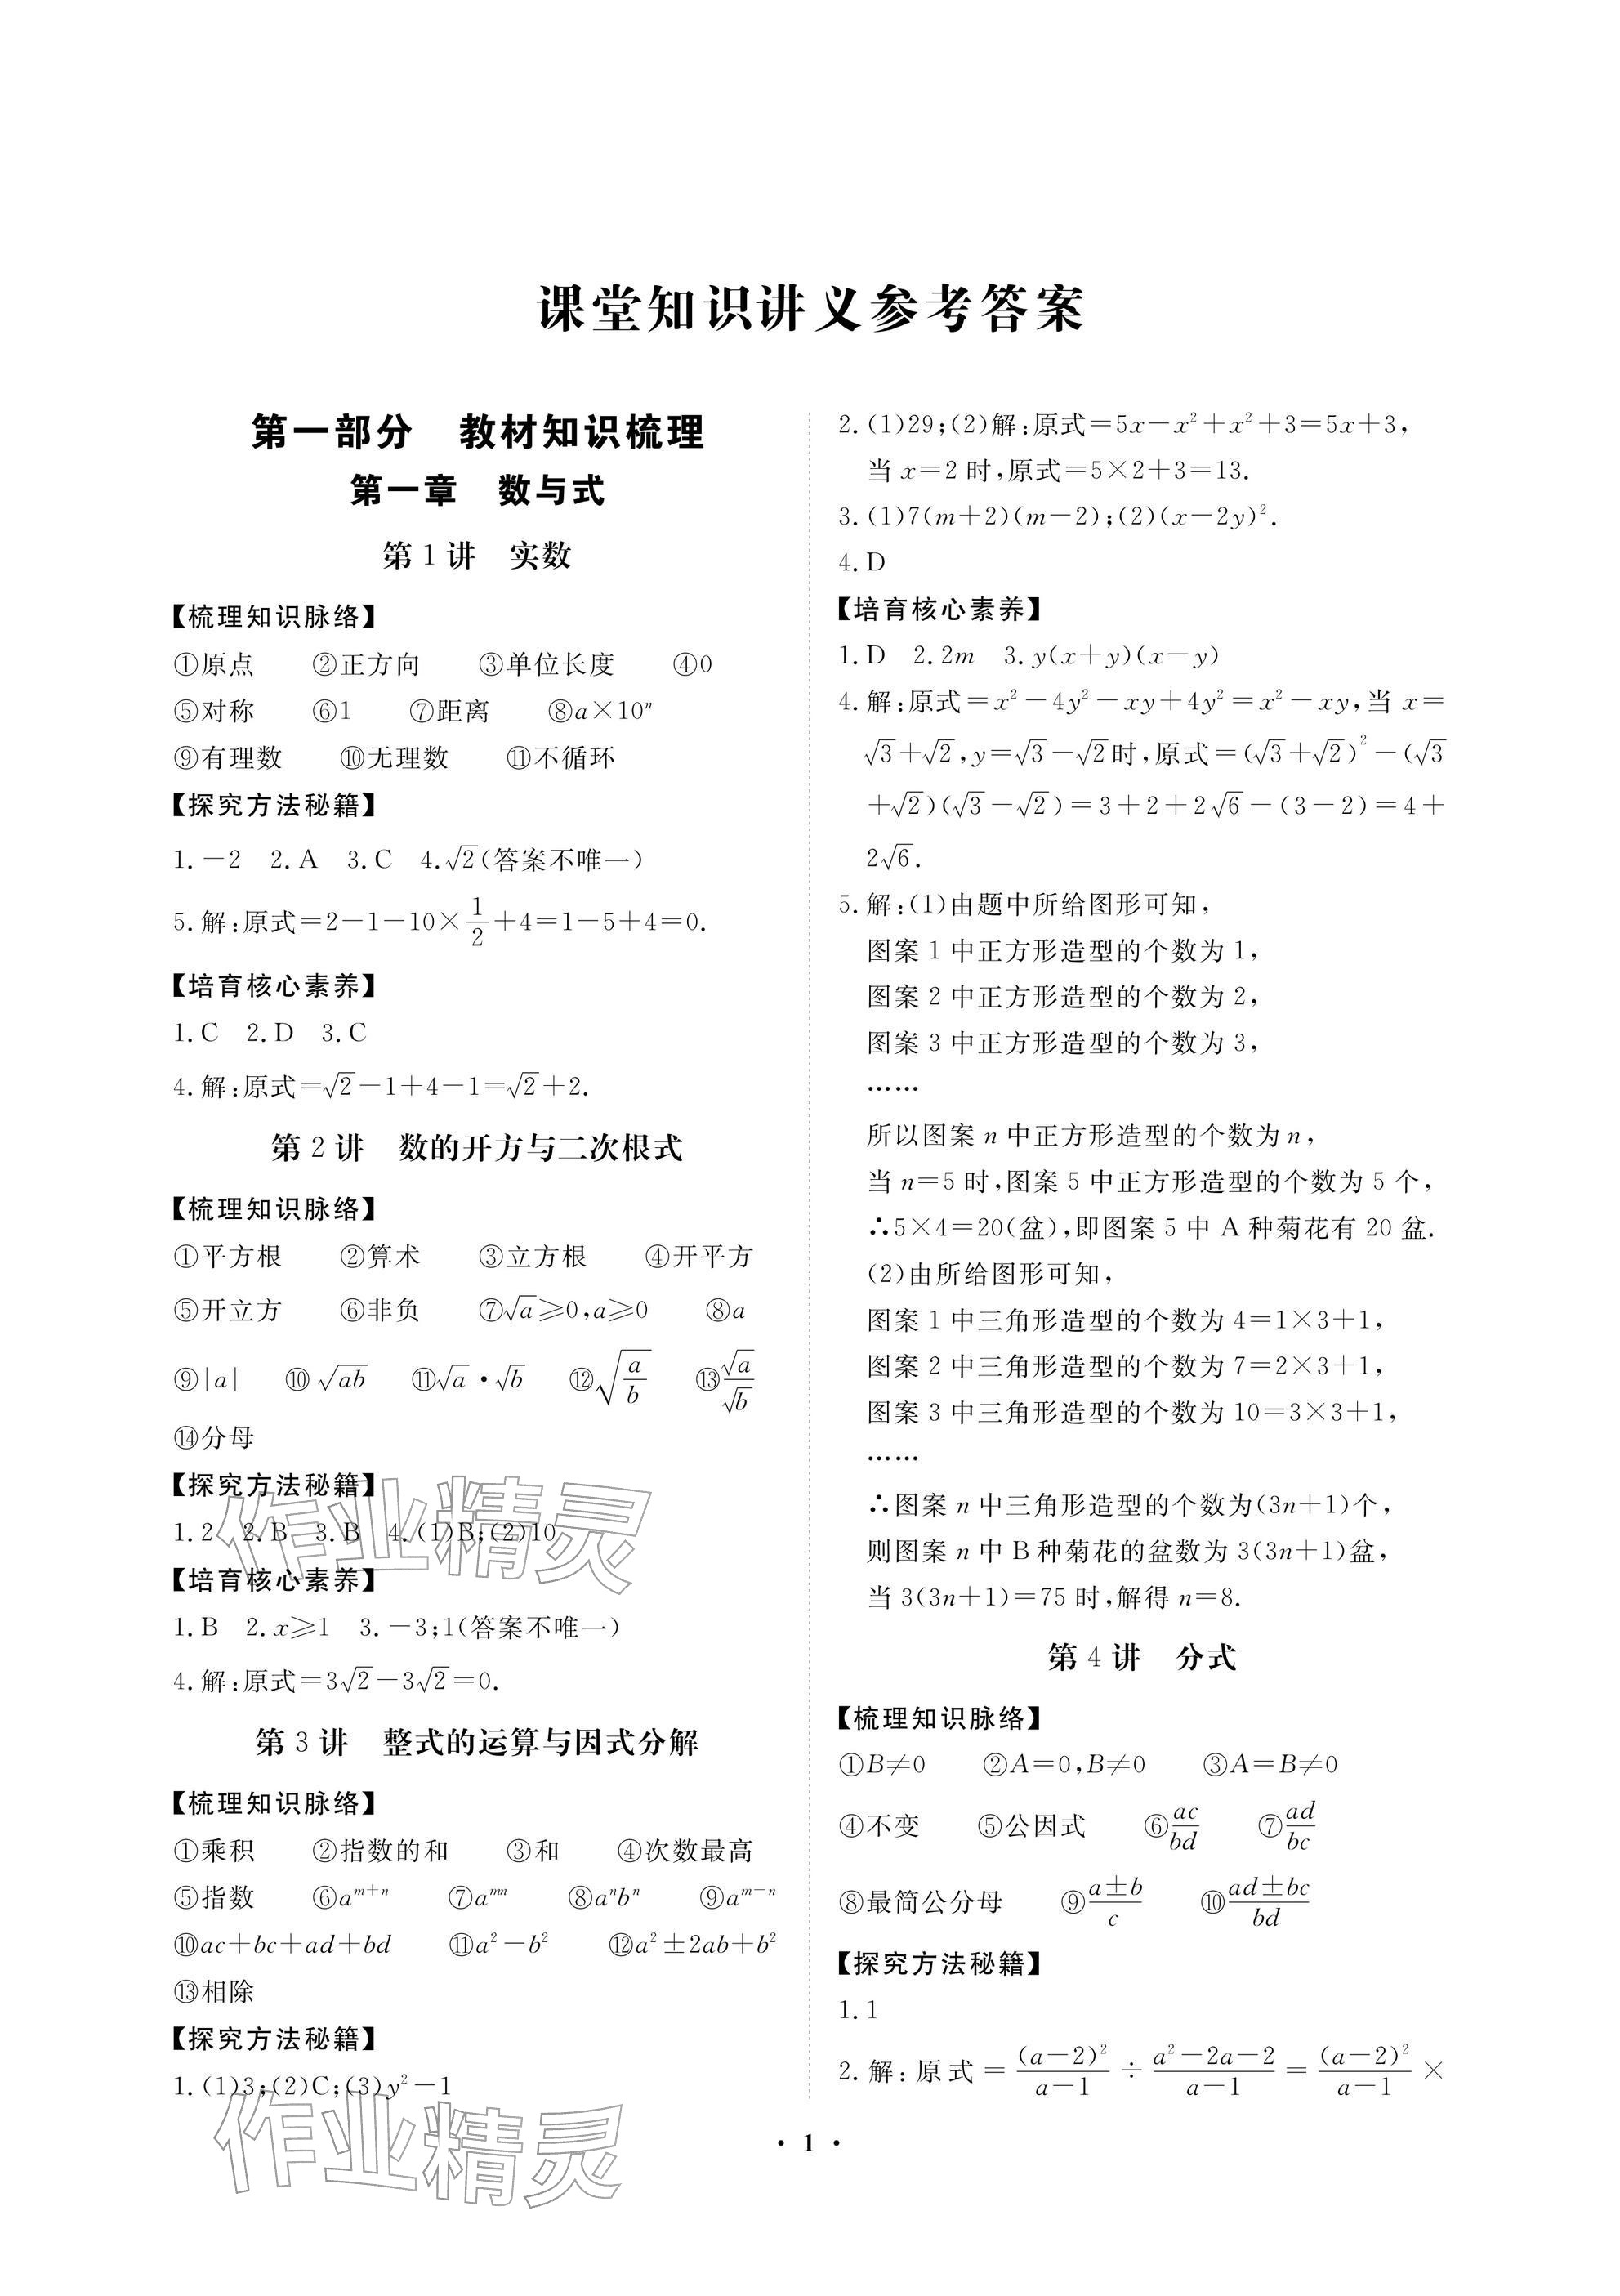 课堂知识讲义参考答案
第一部分　教材知识梳理
第一章　数与式
第 1 讲　实数
【梳理知识脉络】
①原点　②正方向　③单位长度　④0
⑤对称　⑥1　⑦距离　⑧a×10ⁿ
⑨有理数　⑩无理数　⑪不循环
【探究方法秘籍】
1.－2　2.A　3.C　4.√2(答案不唯一)
5.解:原式=2－1－10×1/2+4=1－5+4=0.
【培育核心素养】
1.C　2.D　3.C
4.解:原式=√2－1+4－1=√2+2.
第 2 讲　数的开方与二次根式
【梳理知识脉络】
①平方根　②算术　③立方根　④开平方
⑤开立方　⑥非负　⑦√a⩾0,a⩾0　⑧a
⑨|a|　⑩√(ab)　⑪√a·√b　⑫√(a/b)　⑬√a/√b
⑭分母
【探究方法秘籍】
1.2　2.B　3.B　4.(1)B;(2)10
【培育核心素养】
1.B　2.x⩾1　3.－3;1(答案不唯一)
4.解:原式=3√2－3√2=0.
第 3 讲　整式的运算与因式分解
【梳理知识脉络】
①乘积　②指数的和　③和　④次数最高
⑤指数　⑥aᵐ⁺ⁿ　⑦aᵐⁿ　⑧aⁿbⁿ　⑨aᵐ⁻ⁿ
⑩ac+bc+ad+bd　⑪a²－b²　⑫a²±2ab+b²
⑬相除
【探究方法秘籍】
1.(1)3;(2)C;(3)y²－1
2.(1)29;(2)解:原式=5x－x²+x²+3=5x+3,
当 x=2 时,原式=5×2+3=13.
3.(1)7(m+2)(m－2);(2)(x－2y)².
4.D
【培育核心素养】
1.D　2.2m　3.y(x+y)(x－y)
4.解:原式=x²－4y²－xy+4y²=x²－xy,当 x=
√3+√2,y=√3－√2时,原式=(√3+√2)²－(√3
+√2)(√3－√2)=3+2+2√6－(3－2)=4+
2√6.
5.解:(1)由题中所给图形可知,
图案 1 中正方形造型的个数为 1,
图案 2 中正方形造型的个数为 2,
图案 3 中正方形造型的个数为 3,
……
所以图案 n 中正方形造型的个数为n,
当 n=5 时,图案 5 中正方形造型的个数为 5 个,
∴5×4=20(盆),即图案 5 中 A 种菊花有 20 盆.
(2)由所给图形可知,
图案 1 中三角形造型的个数为 4=1×3+1,
图案 2 中三角形造型的个数为 7=2×3+1,
图案 3 中三角形造型的个数为 10=3×3+1,
……
∴图案 n 中三角形造型的个数为(3n+1)个,
则图案 n 中 B 种菊花的盆数为 3(3n+1)盆,
当 3(3n+1)=75 时,解得 n=8.
第 4 讲　分式
【梳理知识脉络】
①B≠0　②A=0,B≠0　③A=B≠0
④不变　⑤公因式　⑥ac/bd　⑦ad/bc
⑧最简公分母　⑨(a±b)/c　⑩(ad±bc)/bd
【探究方法秘籍】
1.1
2.解:原式=(a－2)²/(a－1)÷(a²－2a－2)/(a－1)=(a－2)²/(a－1)×
· 1 ·
作业精灵
作业精灵